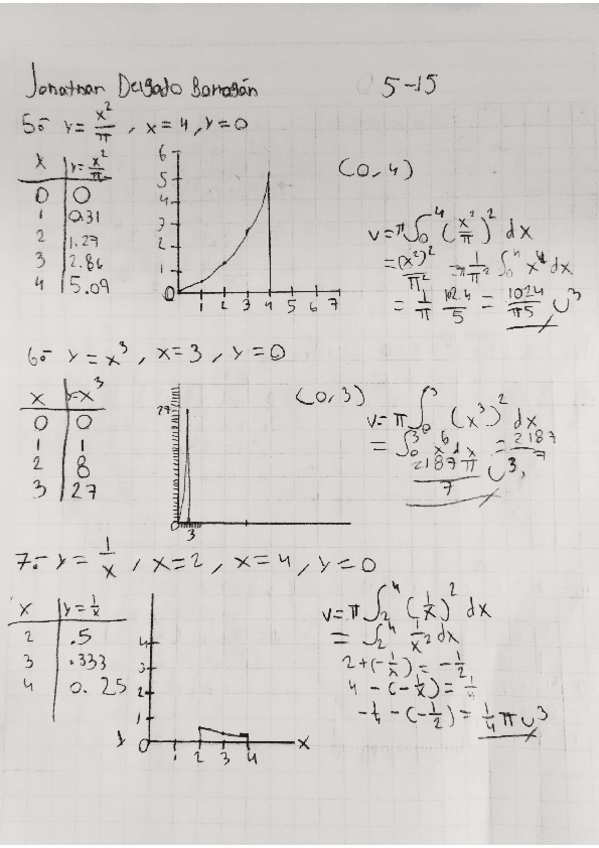 Jonathan Delgado Barragán 5-15
5.- y = x²/π , x=4, y=0
x | y=x²/π
0 | 0
1 | 0.31
2 | 1.27
3 | 2.86
4 | 5.09
6
5
4
3
2
1
0 1 2 3 4 5 6 7
(0,4)
v=π∫₀⁴ (x²/π)² dx
=(x²)²/π² =π 1/π² ∫₀⁴ x⁴ dx
= 1/π 1024/5 = 1024/π5 u³
6.- y = x³ , x=3 , y=0
x | y=x³
0 | 0
1 | 1
2 | 8
3 | 27
27
0 3
(0,3)
v= π∫₀³ (x³)² dx
= ∫₀³ x⁶ dx = 2187/7
2187π/7 u³,
7.- y = 1/x , x=2 , x=4, y=0
x | y=1/x
2 | .5
3 | .333
4 | 0.25
4
3
2
1
y 0 1 2 3 4 x
v=π∫₂⁴ (1/x)² dx
= ∫₂⁴ 1/x² dx
2+(-1/x)= -1/2
4-(-1/x)= 1/4
-1/4 -(-1/2)= 1/4 π u³